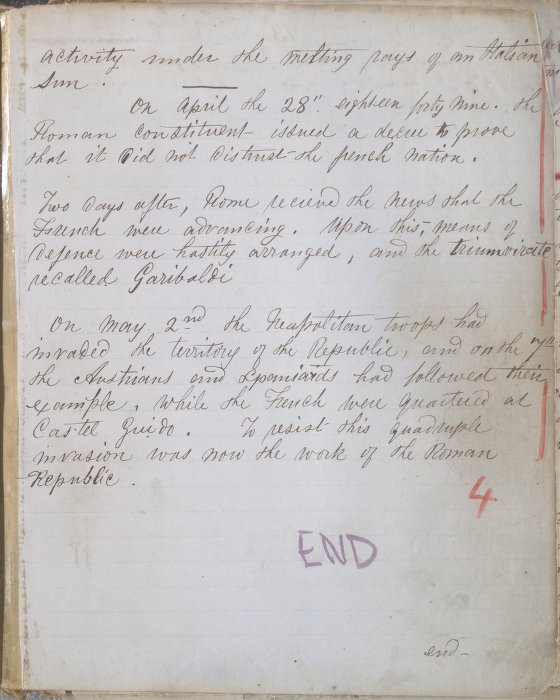 activity under the melting rays of an Italian
Sun.
On April the 28" eighteen forty nine. the
Roman constituent issued a decree to prove
that it did not distrust the french nation.
Two days after, Rome recieved the news that the
French were advancing. Upon this, means of
defence were hastily arranged, and the triumvirate
recalled Garibaldi
On May 2nd the Neapolitan troops had
invaded the territory of the Republic, and on the 7th
the Austrians and Spaniards had followed their
example, while the French were quartered at
Castel Guido. To resist this quadruple
invasion was now the work of the Roman
Republic.
4
END
end-